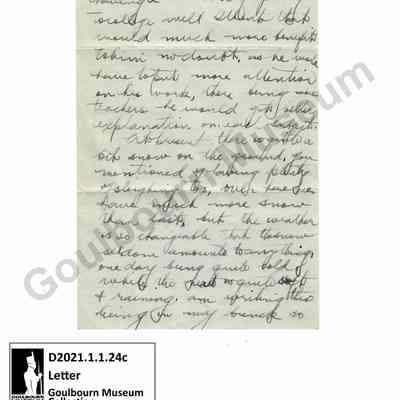 college will ... that
would much more benefit
to him no doubt, as he would
have to put more attention
on his work, there being more
teachers he would get
explanation on each subject.
At present there is quite a
bit snow on the ground, you
mentioned of having plenty
of sleighing too, over here we
have much more snow
than last, but the weather
is so changeable that the snow
seldom amounts to anything,
one day being quite cold &
while the next is quite soft
& raining. am writing this
lieing in my bunk so
Goulbourn Museum
D2021.1.1.24c
Letter
Goulbourn Museum
Collection